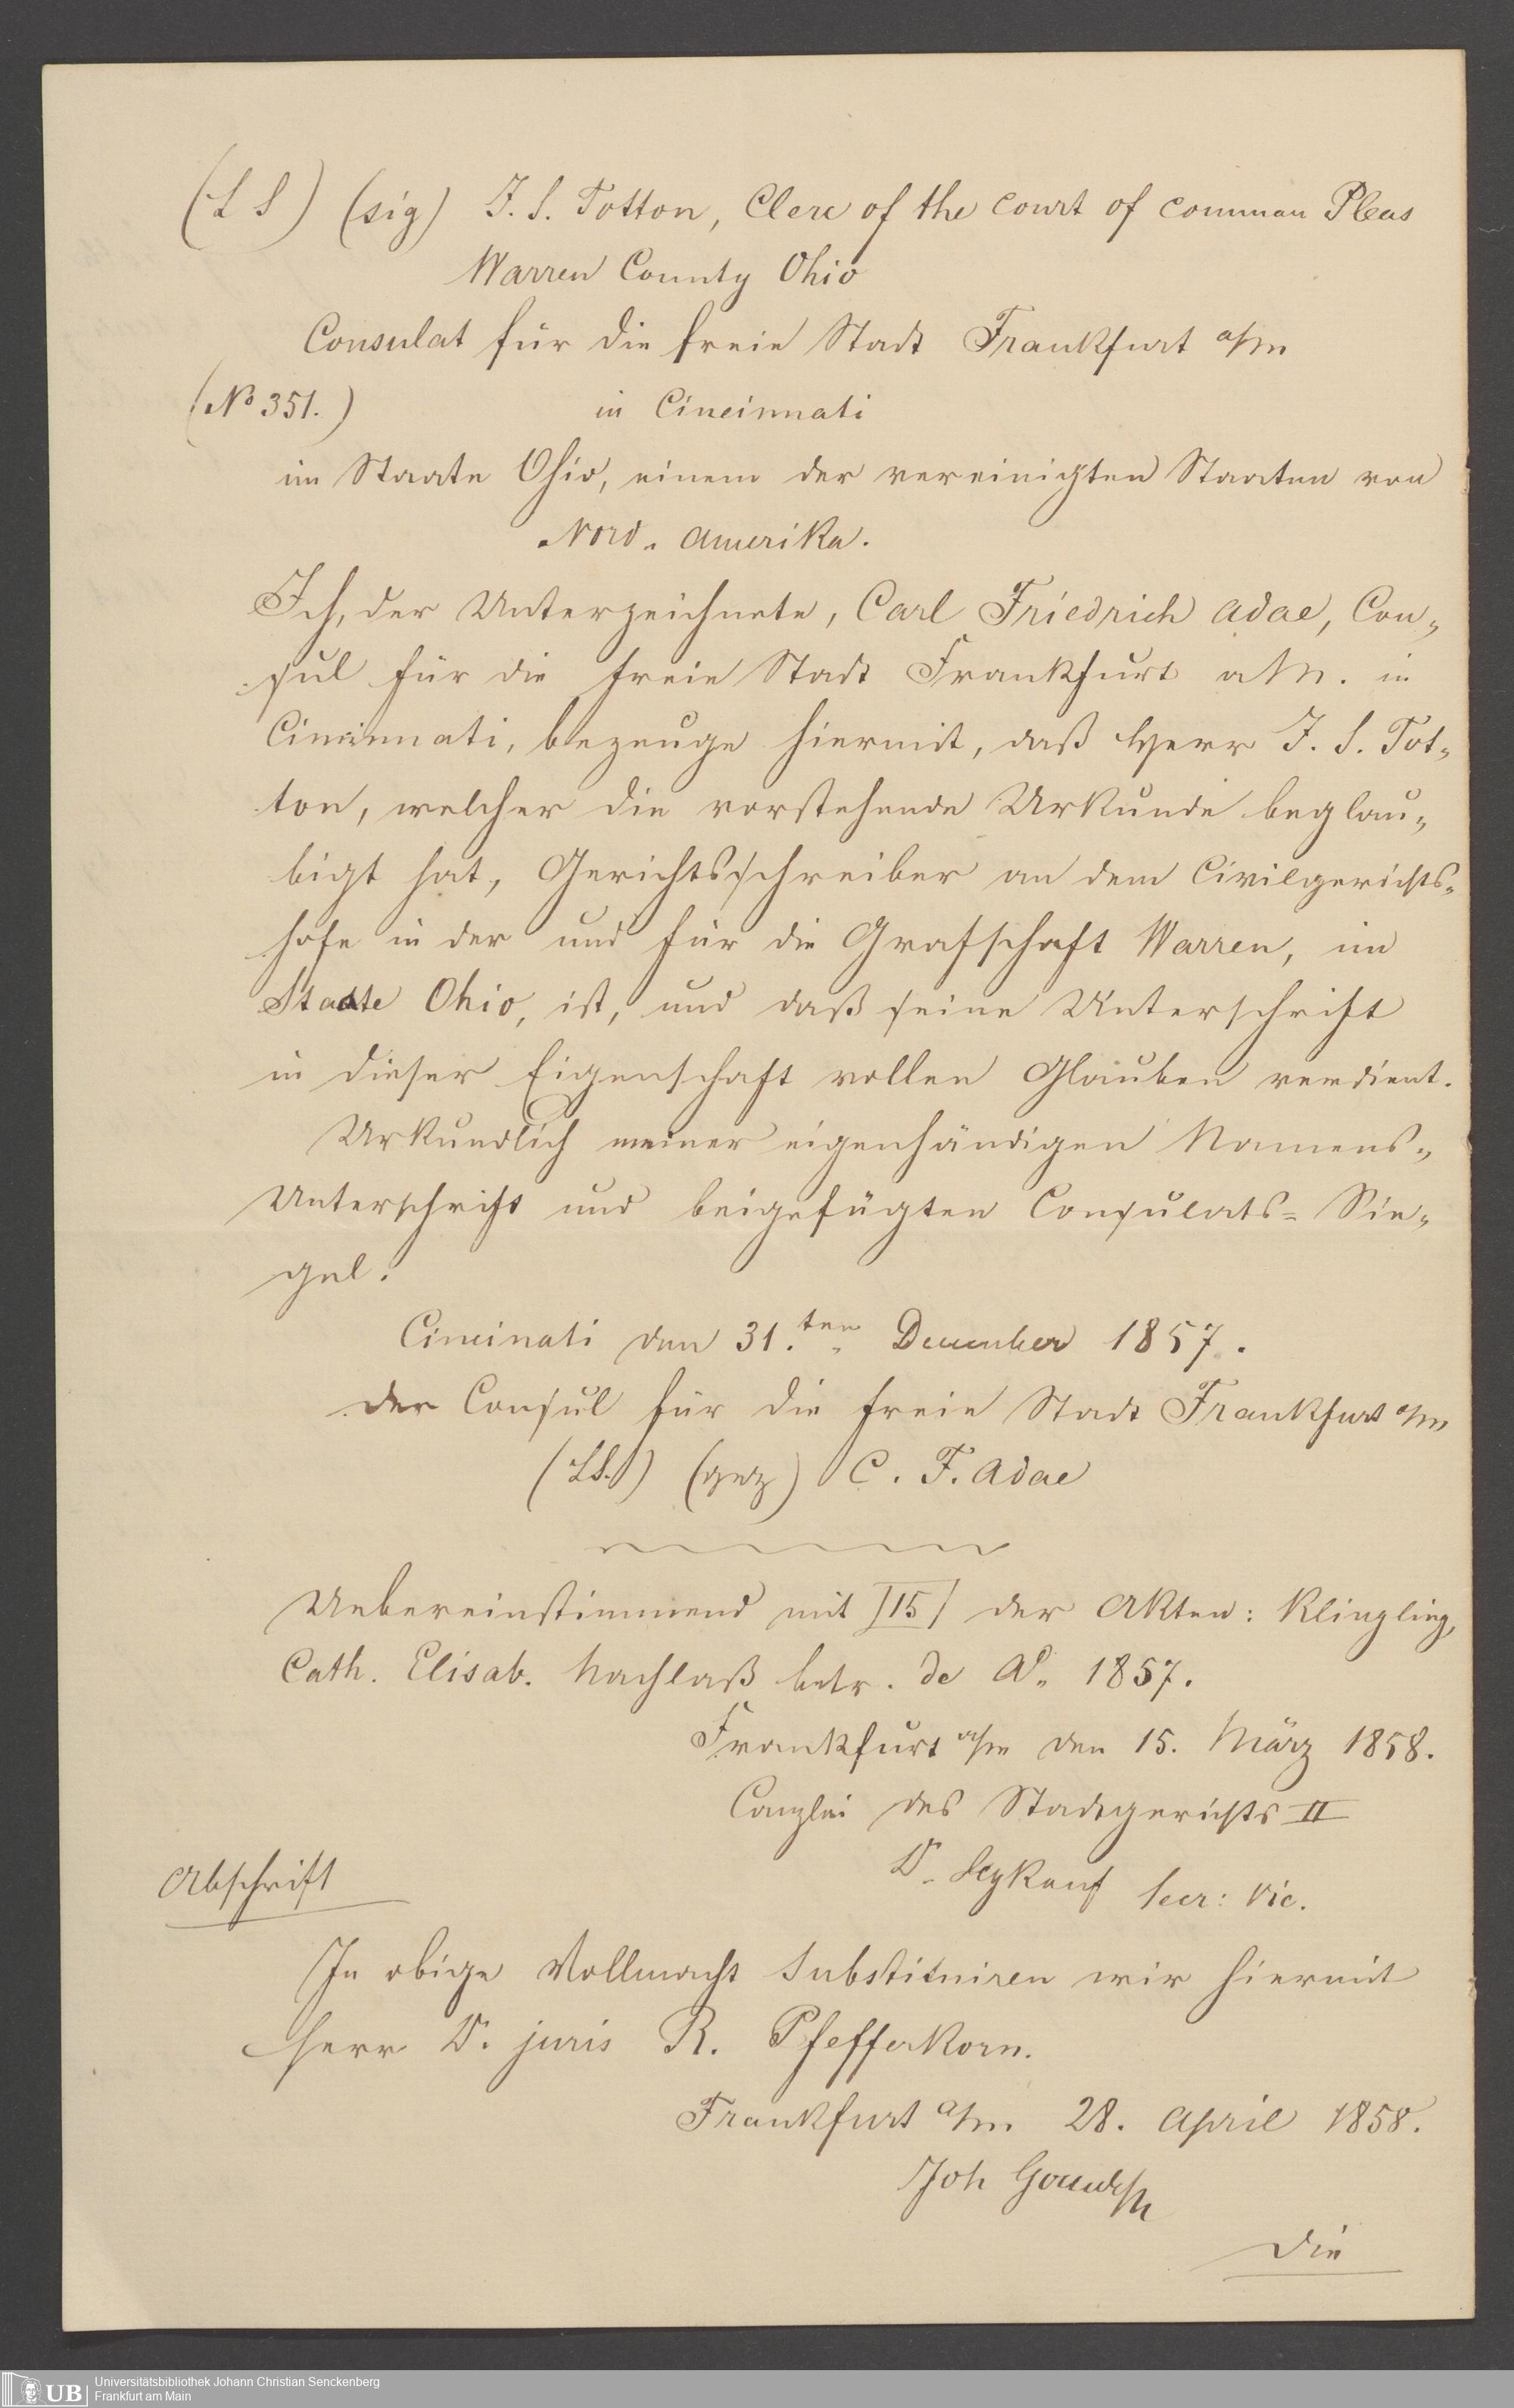 (L S) (sig) J. S. Totton, Clerc of the court of comman Pleas
Warren County Ohio
Consulat für die freie Stadt Frankfurt a/m
(No 351.) in Cincinnati
im Staate Ohio, einem der vereinigten Staaten von
Nord-Amerika.
Ich, der Unterzeichnete, Carl Friedrich Adae, Con-
sul für die freie Stadt Frankfurt a M. in
Cincinnati, bezeuge hiermit, daß Herr J. S. Tot-
ton, welcher die vorstehende Urkunde beglau-
bigt hat, Gerichtsschreiber an dem Civilgerichts-
hofe in der und für die Grafschaft Warren, im
Staate Ohio, ist, und daß seine Unterschrift
in dieser Eigenschaft vollen Glauben verdient.
Urkundlich meiner eigenhändigen Namens-
Unterschrift und beigefügten Consulats-Sie-
gel.
Cincinati den 31.ten December 1857.
der Consul für die freie Stadt Frankfurt a/m
(LS.) (gez) C. F. Adae
Uebereinstimmend mit [15] der Akten: Klingling,
Cath. Elisab. Nachlaß betr. de Ao. 1857.
Frankfurt a/m den 15. März 1858.
Canzlei des Stadtgerichts II
Dr. Seykauf Secr: vic.
Abschrift
In obige Vollmacht substituiren wir hiermit
Herr Dr. juris R. Pfefferkorn.
Frankfurt a/m. 28. April 1858.
Joh
Die
Universitätsbibliothek Johann Christian Senckenberg
Frankfurt am Main
UB